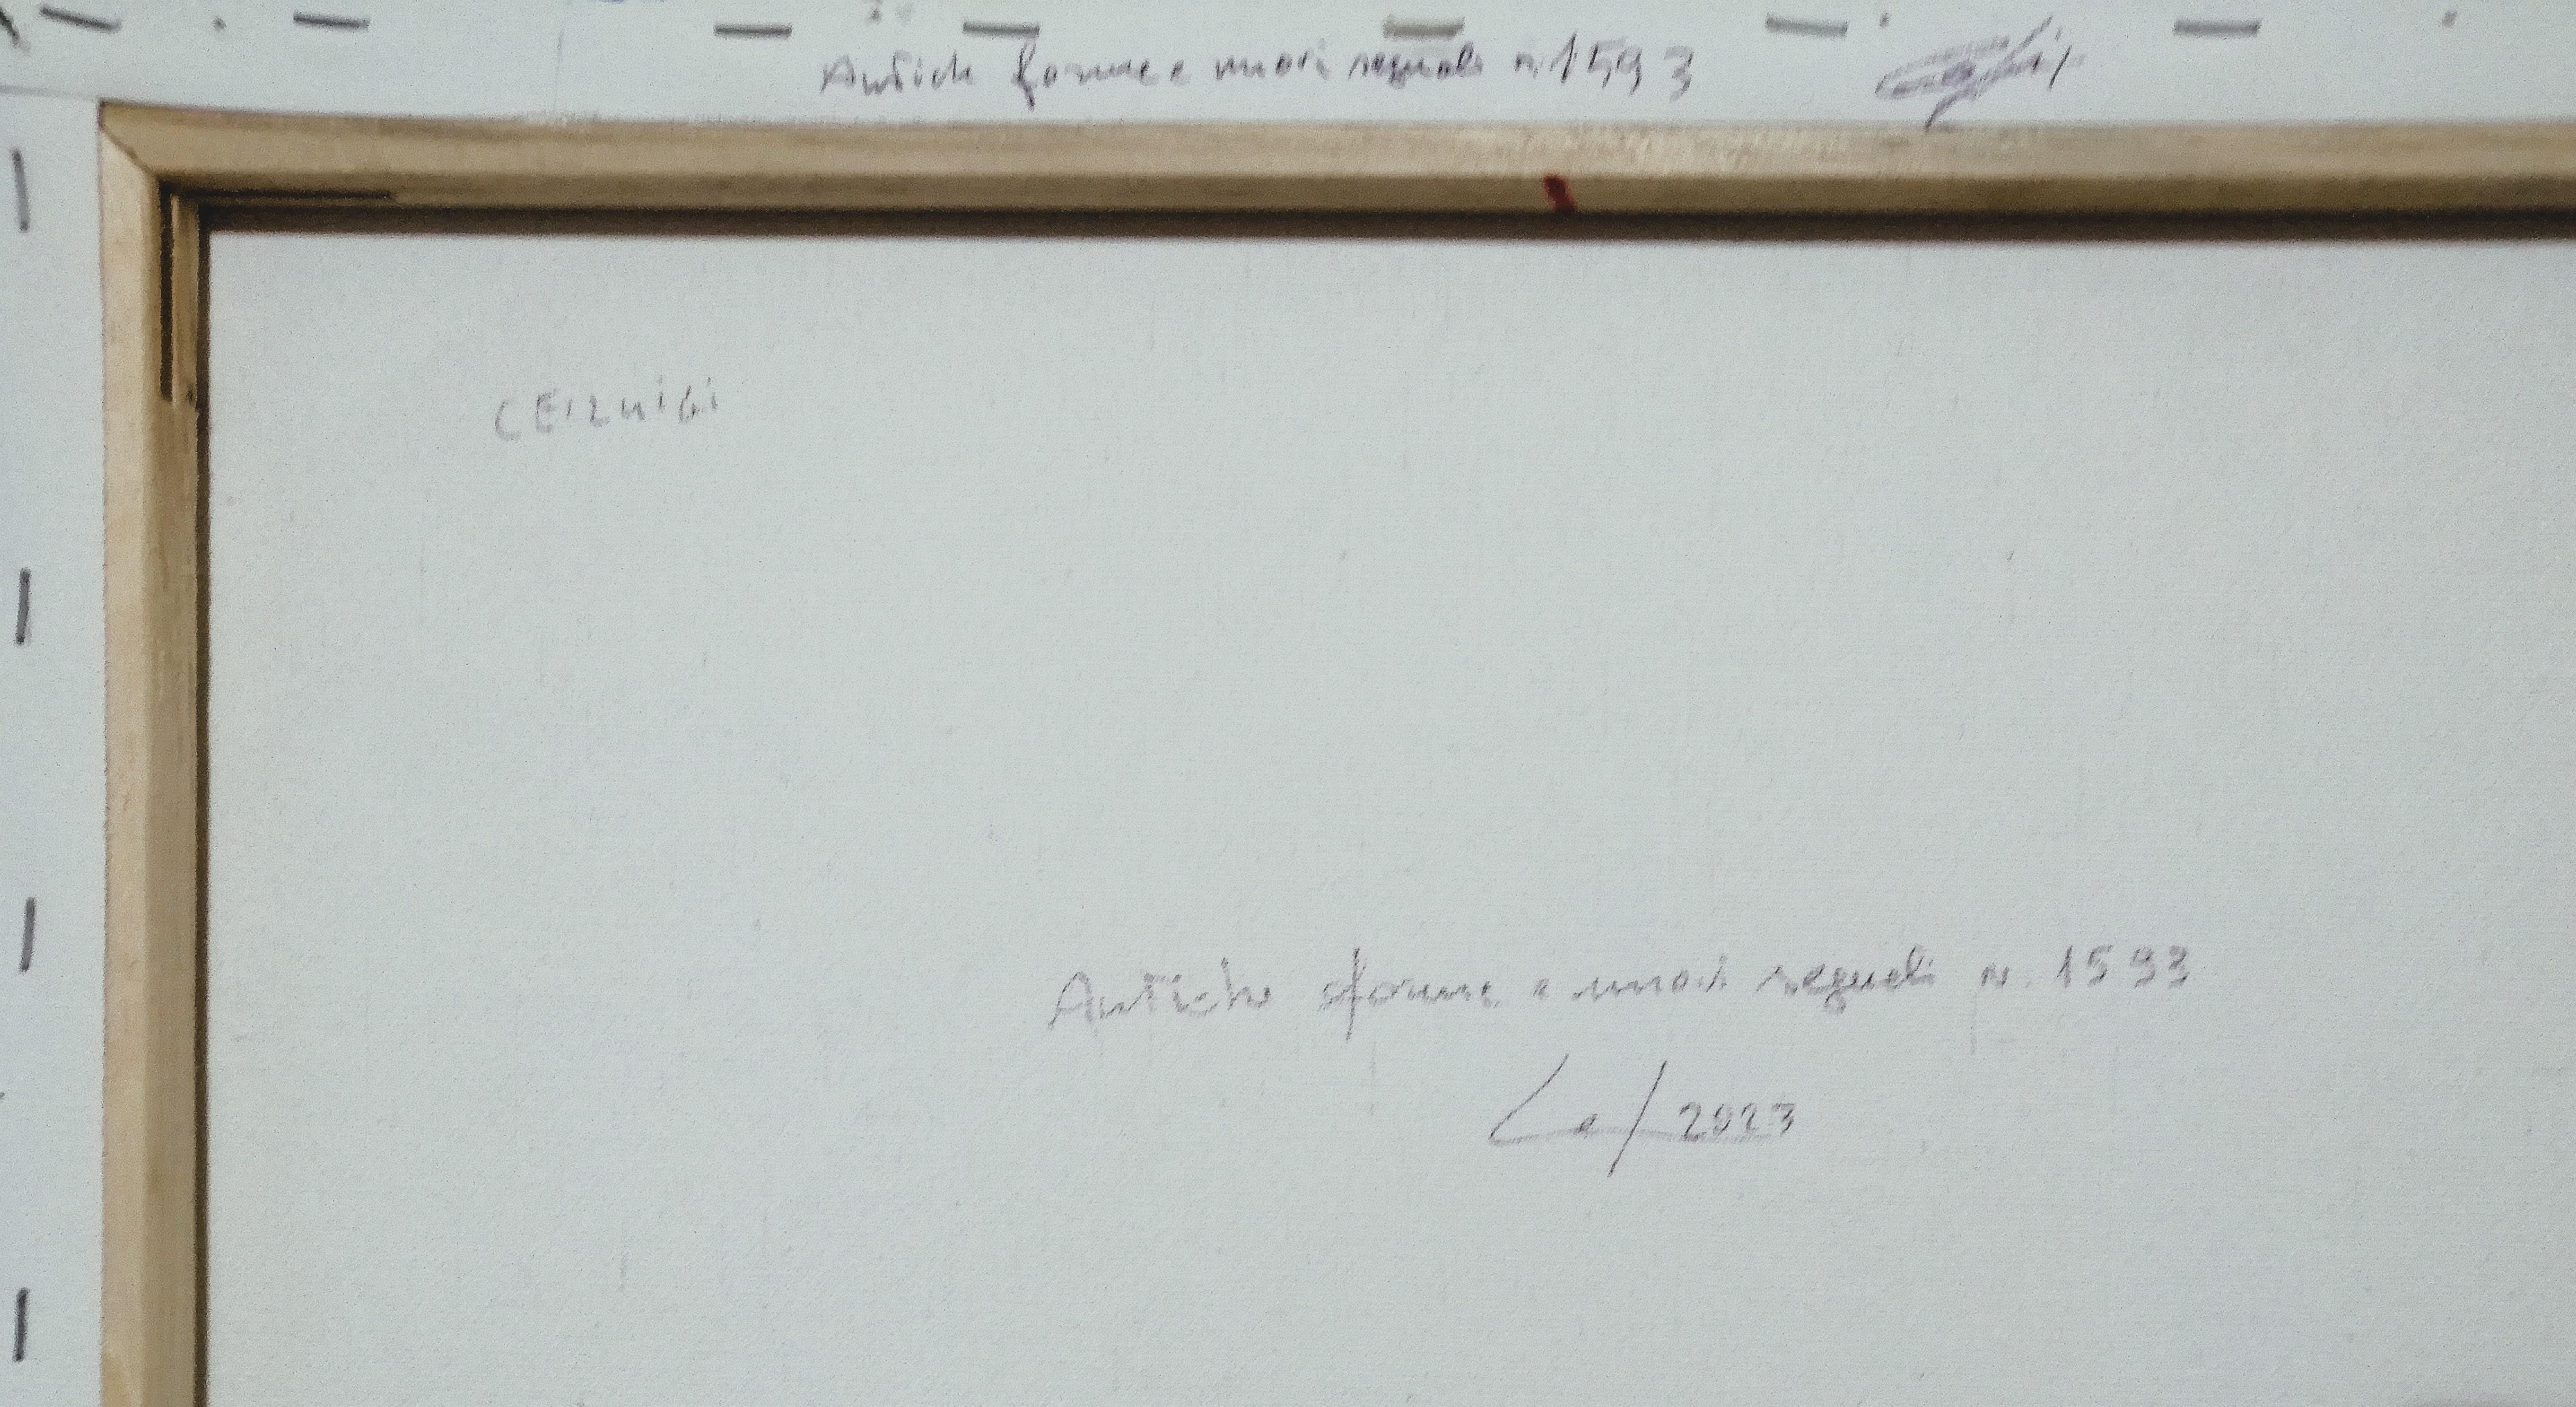 Antiche forme e nuovi segnali n. 1593
CEILUIGI
Antiche forme e nuovi segnali n. 1593
2023